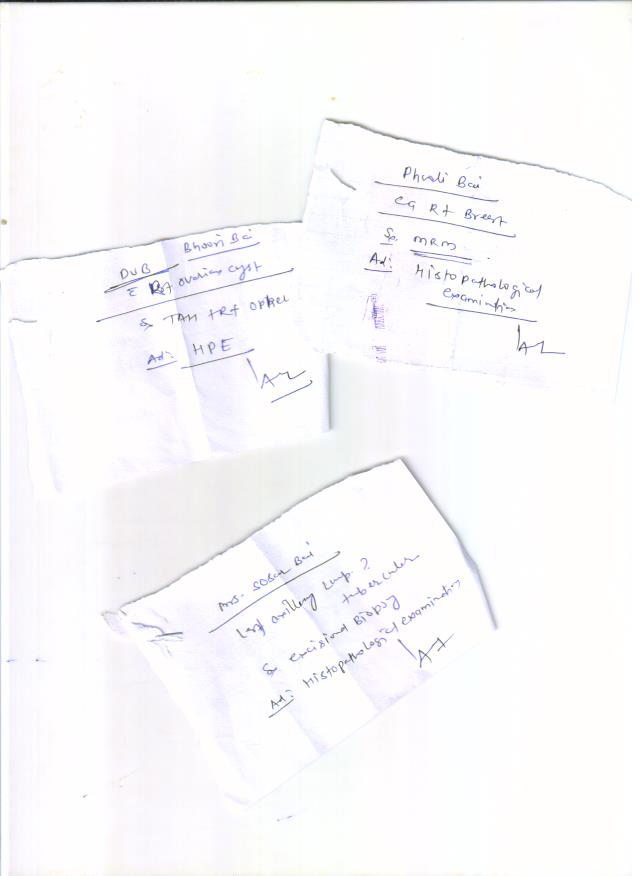 Phuli Bai
Ca Rt Breast
Sp. MRM
Ad: Histopathological
examination
Bhoori Bai
DUB
c Rt ovarian cyst
S. TAH + Rt ophor
Ad: HPE
Mrs. Sosar Bai
Left axillary lump ?
tubercular
S. excisional Biopsy
Ad: Histopathological examination